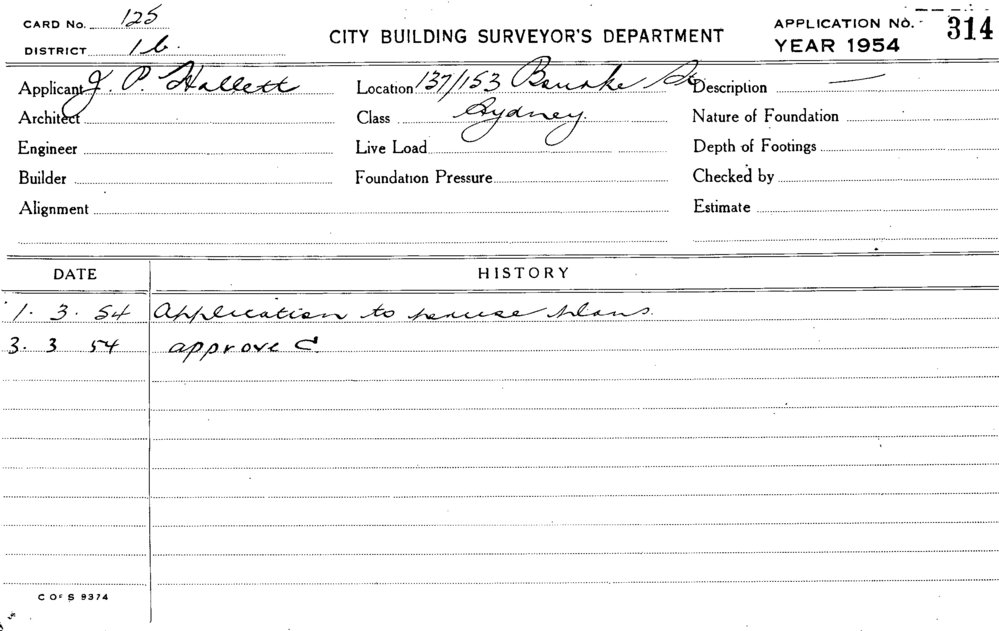 CARD No. 125
DISTRICT 1b.
CITY BUILDING SURVEYOR'S DEPARTMENT
APPLICATION NO. 314
YEAR 1954
Applicant J. P. Hallett
Location 137/153 Bourke St
Description —
Architect
Class Sydney.
Nature of Foundation
Engineer
Live Load
Depth of Footings
Builder
Foundation Pressure
Checked by
Alignment
Estimate
DATE HISTORY
1. 3. 54 Application to peruse plans.
3. 3 54 approve C
C OF S 9374